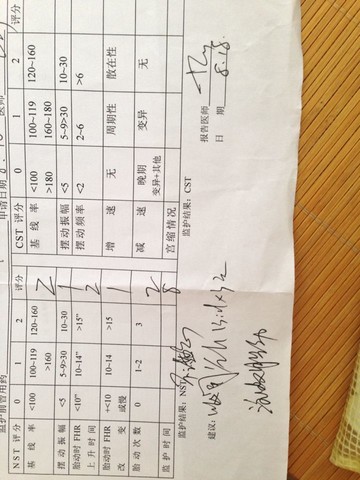 申请日期
医师
NST 评分 0 1 2 评分 CST 评分 0 1 2 评分
基线率 <100 100~119 120~160 2 基线率 <100 100~119 120~160
>160 >180 160~180
摆动振幅 <5 5~9>30 10~30 1 摆动振幅 <5 5~9>30 10~30
胎动时 FHR <10" 10~14" >15" 2 摆动频率 <2 2~6 >6
上升时间
胎动时 FHR +<10 10~14 >15 1 增速 无 周期性 散在性
改变 或慢
胎动次数 0 1~2 3 2 减速 晚期 变异 无
变异+其他
监护时间 8 宫缩情况
监护结果: NST: 监护结果: CST
建议:
报告医师
日期 8.18